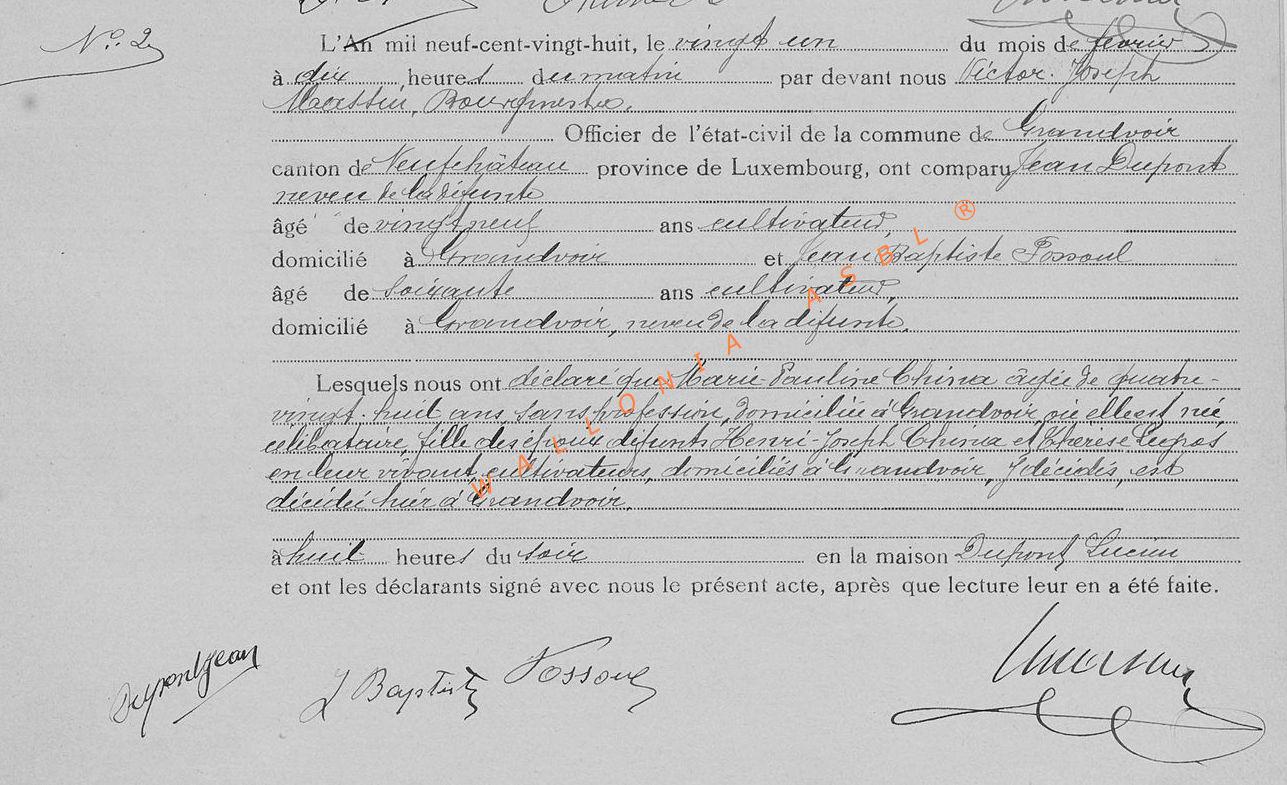 N° 2
L'An mil neuf-cent-vingt-huit, le vingt un du mois de février
à dix heures du matin par devant nous Victor Joseph
Massin, Bourgmestre.
Officier de l'état-civil de la commune de Grandvoir
canton de Neufchâteau province de Luxembourg, ont comparu Jean Dupont
neveu de la défunte
âgé de vingt neuf ans cultivateur,
domicilié à Grandvoir et Jean Baptiste Fossoul
âgé de soixante ans cultivateur,
domicilié à Grandvoir, neveu de la défunte.
Lesquels nous ont déclaré que Marie Pauline China âgée de quatre-
vingt-huit ans, sans profession, domiciliée à Grandvoir, où elle est née,
célibataire, fille des époux défunts Henri-Joseph China et Thérèse
en leur vivant cultivateurs, domiciliés à Grandvoir, y décédés, est
décédée hier à Grandvoir.
à huit heures du soir en la maison Dupont Lucien
et ont les déclarants signé avec nous le présent acte, après que lecture leur en a été faite.
Dupont Jean
J Baptiste Fossoul
WALLONIA ASBL ®